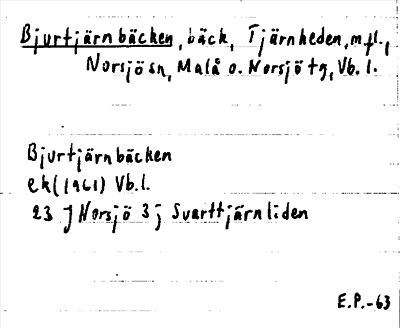 Bjurtjärnbäcken, bäck, Tjärnheden, m.fl.,
Norsjö sn, Malå o. Norsjö tg, Vb. l.
Bjurtjärnbäcken
ek (1961) Vb. l.
23 J Norsjö 3 j Svarttjärnliden
E.P.-63